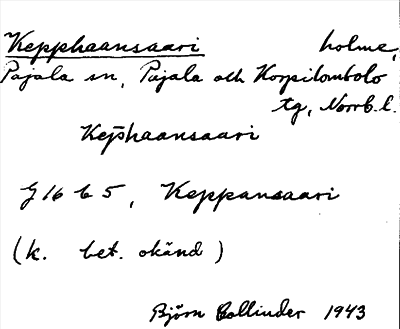 Kepphaansaari holme,
Pajala sn, Pajala och Korpilombolo
tg, Norrb. l.
Kep̄haansaari
J 16 b 5, Keppansaari
(k. bet. okänd)
Björn Collinder 1943